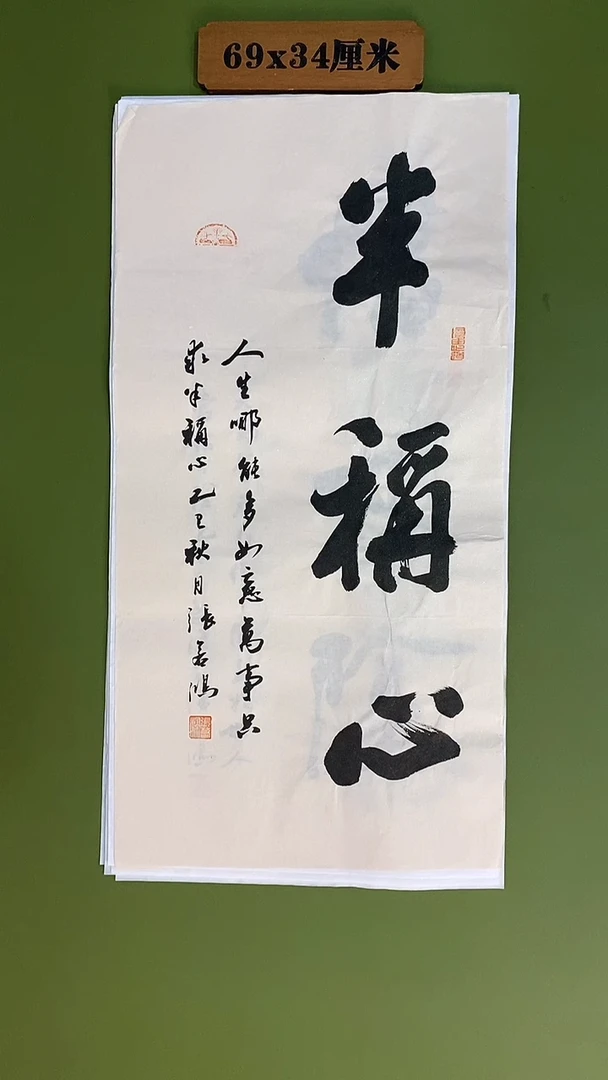 69x34厘米
半稱心
人生哪能多如意萬事只
求半稱心乙巳秋月張若鴻